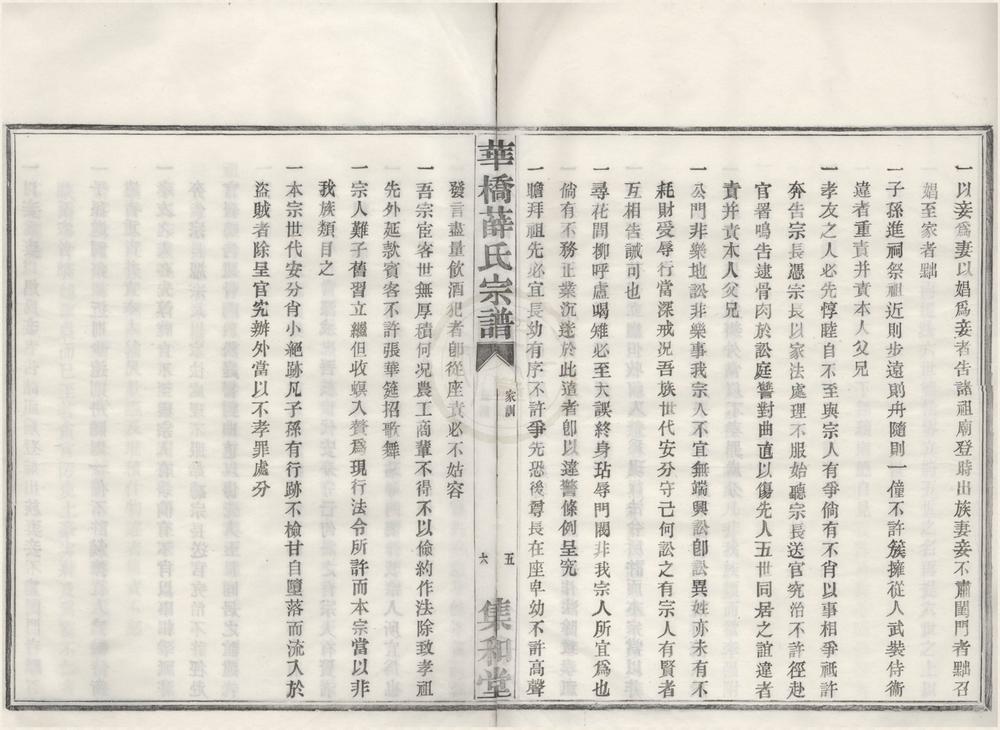 一以妾爲妻以娼爲妾者告諸祖廟登時出族妻妾不肅閨門者黜召
娼至家者黜
一子孫進祠祭祖近則步遠則舟隨則一僮不許簇擁從人武裝侍衛
違者重責幷責本人父兄
一孝友之人必先惇睦自不至與宗人有爭倘有不肖以事相爭祇許
奔告宗長憑宗長以家法處理不服始聽宗長送官究治不許徑赴
官署鳴告逮骨肉於訟庭讐對曲直以傷先人五世同居之誼違者
責幷責本人父兄
一公門非樂地訟非樂事我宗人不宜無端興訟卽訟異姓亦未有不
耗財受辱行當深戒况吾族世代安分守己何訟之有宗人有賢者
互相告誡可也
一尋花問柳呼盧喝雉必至大誤終身玷辱門閥非我宗人所宜爲也
倘有不務正業沉迷於此道者卽以違警條例呈究
一瞻拜祖先必宜長幼有序不許爭先恐後尊長在座卑幼不許高聲
華橋薛氏宗譜
家訓
五
六
集和堂
發言盡量飮酒犯者卽從座責必不姑容
一吾宗宦客世無厚積何况農工商輩不得不以儉約作法除致孝祖
先外延款賓客不許張華筵招歌舞
一宗人難子舊習立繼但收螟入贅爲現行法令所許而本宗當以非
我族類目之
一本宗世代安分宵小絕跡凡子孫有行跡不檢甘自墮落而流入於
盜賊者除呈官究辦外當以不孝罪處分